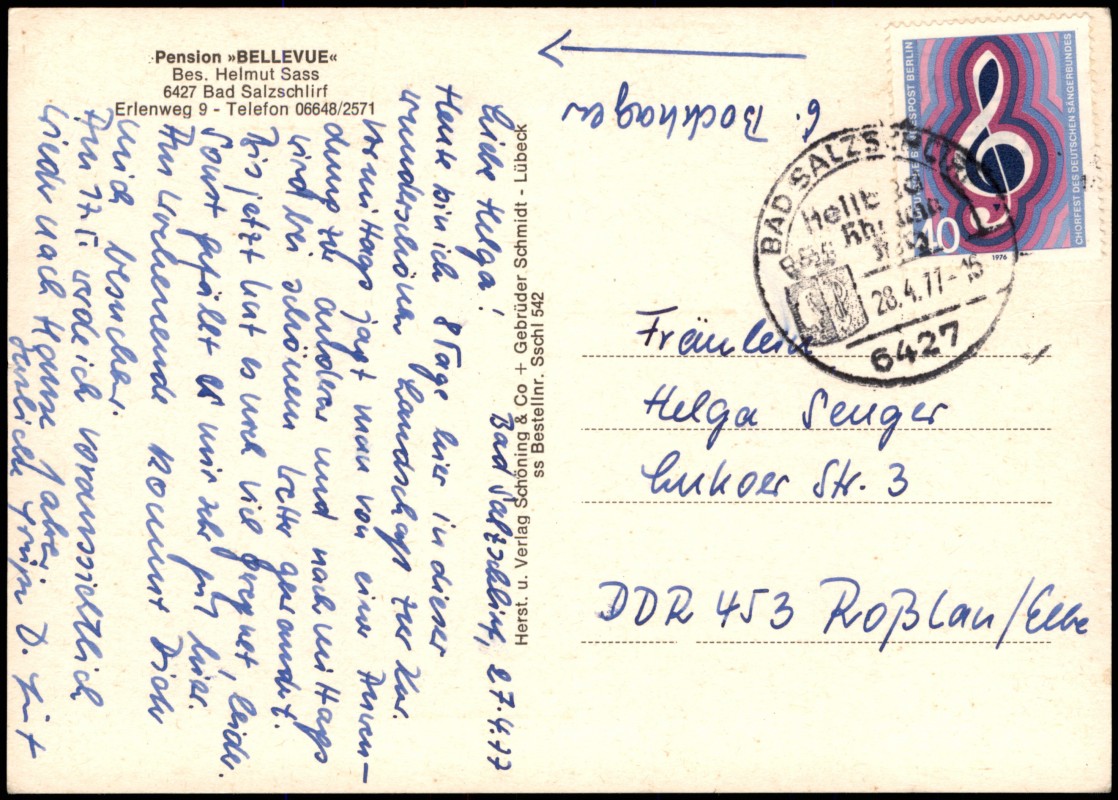 Pension »BELLEVUE«
Bes. Helmut Sass
6427 Bad Salzschlirf
Erlenweg 9 - Telefon 06648/2571
Bad Salzschlirf, 27.4.77
Liebe Helga!
Heute bin ich 8 Tage hier in dieser
wunderschönen Landschaft zur Kur.
Vormittags jagt man von einer Anwen-
dung zur anderen und nachmittags
wird bei schönem Wetter gewandert.
Bis jetzt hat es noch viel geregnet, leider.
Sonst gefällt es mir sehr gut hier.
Am Wochenende kommt Dich
mich besuchen.
Am 17.5. werde ich voraussichtlich
wieder nach Hause fahren
Herzliche Grüße D.
Herst. u. Verlag Schöning & Co + Gebrüder Schmidt - Lübeck
ss Bestellnr. Sschl 542
G. Bockhagen
DEUTSCHE BUNDESPOST BERLIN
CHORFEST DES DEUTSCHEN SÄNGERBUNDES
40
1976
BAD SALZSCHLIRF
Rheuma
28.4.77-16
6427
Fräulein
Helga Senger
Lukoer Str. 3
DDR 453 Roßlau/Elbe